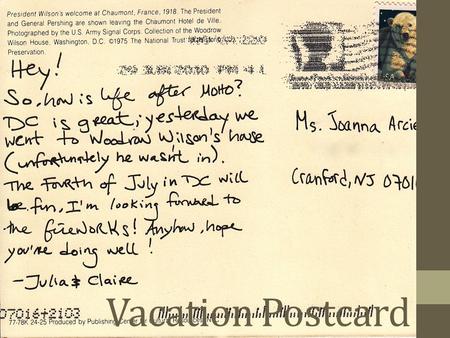 President Wilson's welcome at Chaumont, France, 1918. The President
and General Pershing are shown leaving the Chaumont Hotel de Ville.
Photographed by the U.S. Army Signal Corps. Collection of the Woodrow
Wilson House, Washington, D.C. ©1975 The National Trust for Historic
Preservation.
Hey!
29 JUN 2010 PM 4 L
USA
So, how is life after MOHO?
DC is great; yesterday we
went to Woodrow Wilson's house
(unfortunately he wasn't in).
The Fourth of July in DC will
be fun, I'm looking forward to
the fireworks! Anyhow, hope
you're doing well!
-Julia & Claire
Ms. Joanna Arcie
Cranford, NJ 07016
07016+2103
77-78K 24-25 Produced by Publishing Center for Cultural Resources, NYC
Vacation Postcard